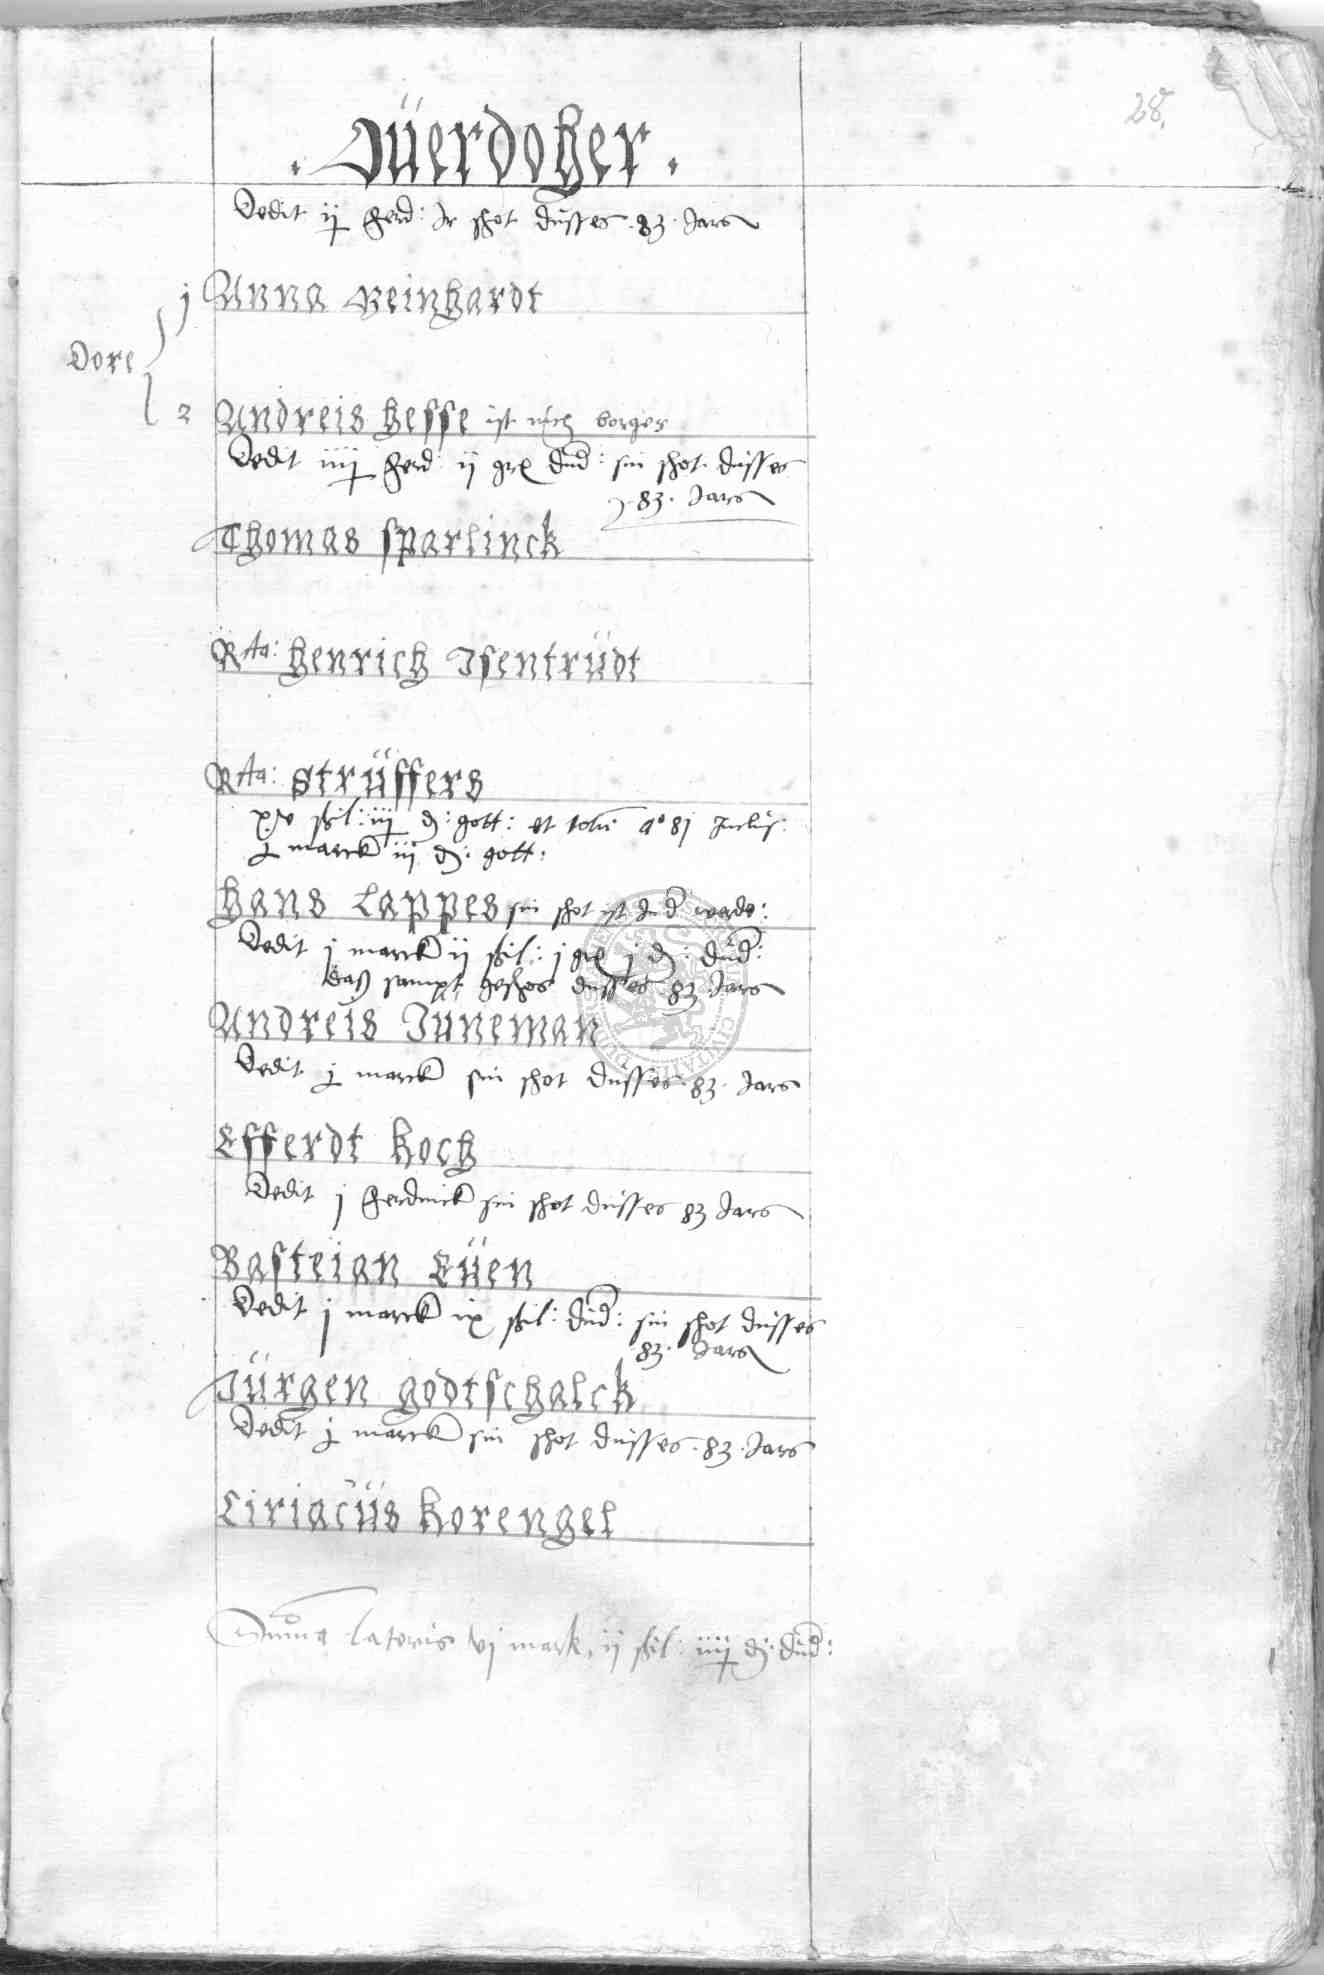 28.
. Jüerdoher .
Dedit ij ferd: Ir schot düsses .83. Jars
j Anna Reinhardt
Dore
2 Andreis hesse ist nich borger
Dedit iiij ferd: ij gr dud: sin schot düsses
.83. Jars
Thomas sparlinck
Rta: henrich Isentrüdt
Rta: Strüffers
xv schil: iij d: gott: et ao 8j Inclus:
j marck iij d: gott:
hans Lappes sin schot ist
Dedit j marck ij schil: j gr j d: dud:
sampt geschos dusses 83 Jars
Andreis Juneman
Dedit j marck sin schot dusses .83. Jars
Efferdt koch
Dedit j ferdinck sin schot düsses 83 Jars
Basteian Eüen
Dedit j marck ix schil: dud: sin schot düsses
83. Jars
Jürgen godtschalck
Dedit j marck sin schot düsses .83. Jars
Ciriacüs korengel
Summa Lateris vj mark, ij schil: iiij d: dud: